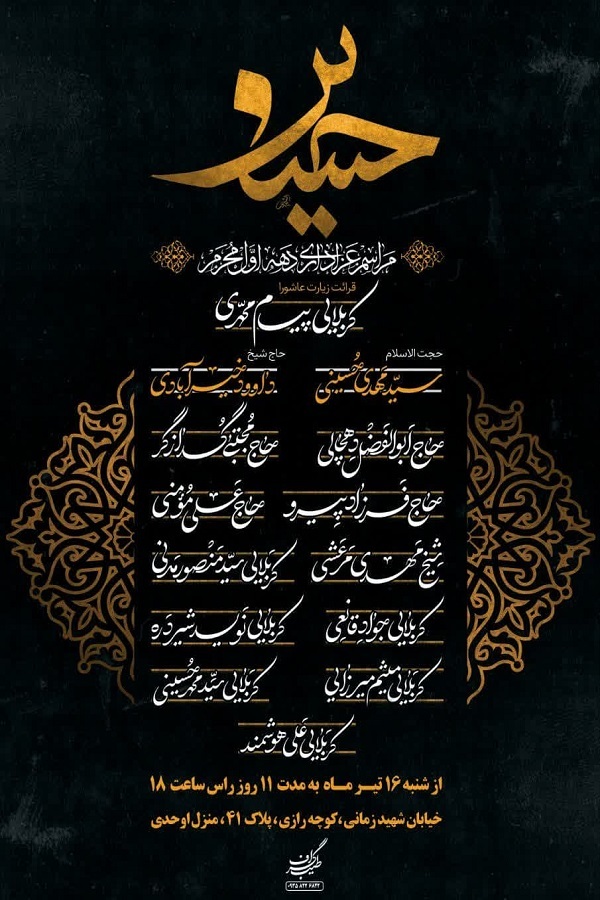 حسین
مراسم عزاداری دهه اول محرم
قرائت زیارت عاشورا
کربلایی پیام مهدی
حجت الاسلام
سید مهدی حسینی
حاج شیخ
داوود خیرآبادی
حاج ابوالفضل دهچالی
حاج مجتبی گدازگر
حاج فرزاد پیرو
حاج علی مؤمنی
شیخ مهدی مرعشی
کربلایی سید منصور مدنی
کربلایی جواد قانعی
کربلایی نوید شیردره
کربلایی میثم میرزایی
کربلایی سید محمد حسینی
کربلایی علی هوشمند
از شنبه ۱۶ تیر ماه به مدت ۱۱ روز راس ساعت ۱۸
خیابان شهید زمانی، کوچه رازی، پلاک ۴۱، منزل اوحدی